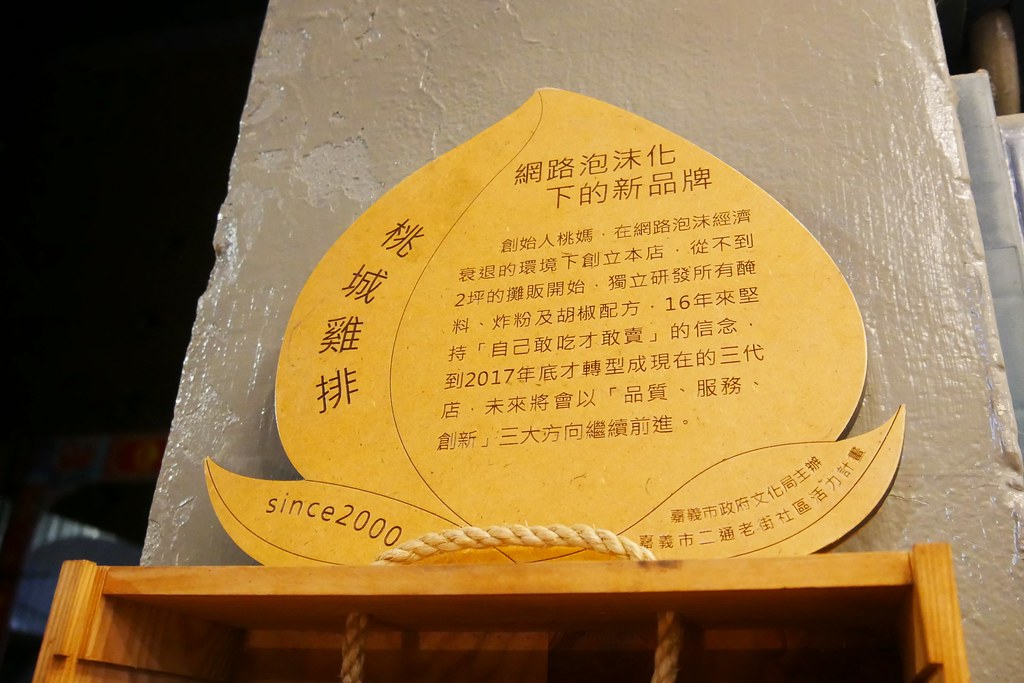 網路泡沫化
下的新品牌
創始人桃媽，在網路泡沫經濟
衰退的環境下創立本店，從不到
2坪的攤販開始，獨立研發所有醃
料、炸粉及胡椒配方，16年來堅
持「自己敢吃才敢賣」的信念，
到2017年底才轉型成現在的三代
店，未來將會以「品質、服務、
創新」三大方向繼續前進。
桃城雞排
since2000
嘉義市政府文化局主辦
嘉義市二通老街社區活力計畫